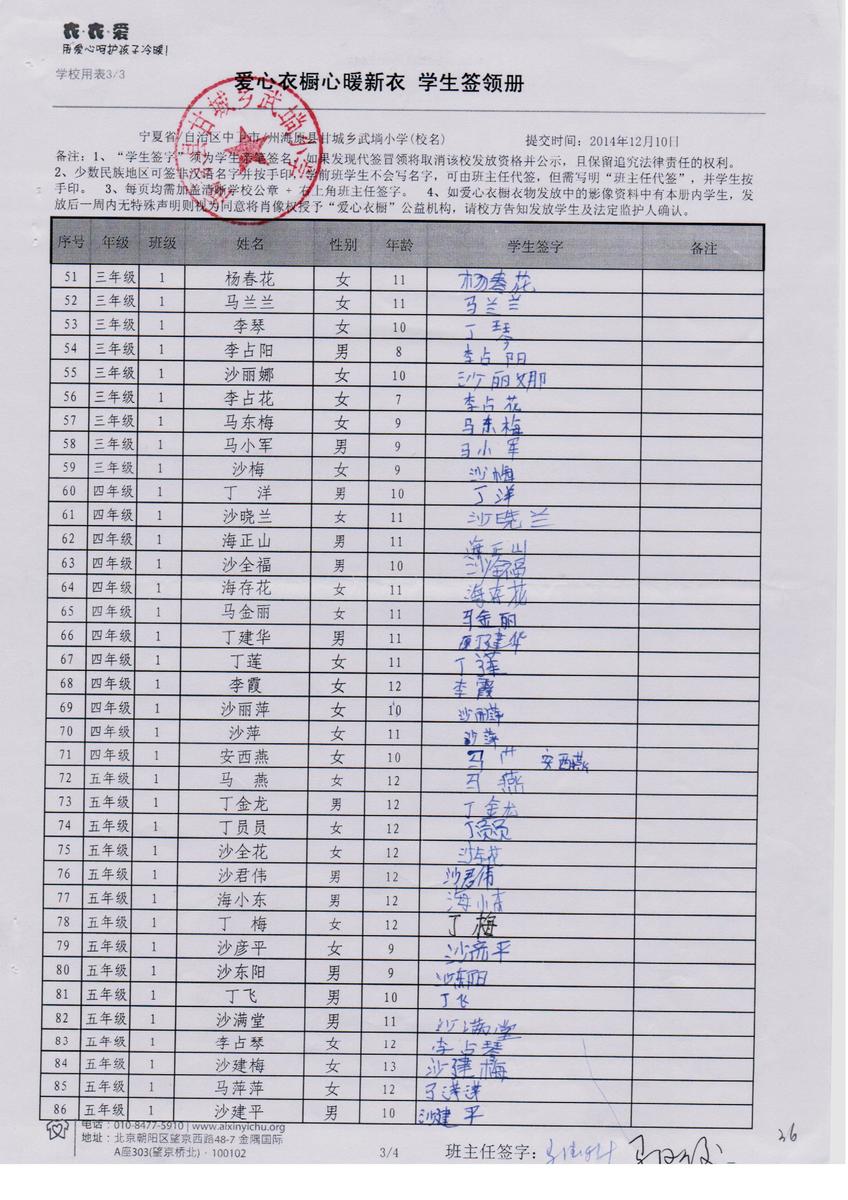 衣·衣·爱
用爱心呵护孩子冷暖!
学校用表3/3
爱心衣橱心暖新衣 学生签领册
宁夏省/自治区中卫市/州海原县甘城乡武塙小学(校名) 提交时间: 2014年12月10日
备注: 1、“学生签字”须为学生亲笔签名, 如果发现代签冒领将取消该校发放资格并公示, 且保留追究法律责任的权利。
2、少数民族地区可签非汉语名字并按手印, 学前班学生不会写名字, 可由班主任代签, 但需写明“班主任代签”, 并学生按
手印。 3、每页均需加盖清晰学校公章 + 右上角班主任签字。 4、如爱心衣橱衣物发放中的影像资料中有本册内学生, 发
放后一周内无特殊声明则视为同意将肖像权授予“爱心衣橱”公益机构, 请校方告知发放学生及法定监护人确认。
序号 年级 班级 姓名 性别 年龄 学生签字 备注
51 三年级 1 杨春花 女 11 杨春花
52 三年级 1 马兰兰 女 11 马兰兰
53 三年级 1 李琴 女 10 丁琴
54 三年级 1 李占阳 男 8 李占阳
55 三年级 1 沙丽娜 女 10 沙丽娜
56 三年级 1 李占花 女 7 李占花
57 三年级 1 马东梅 女 9 马东梅
58 三年级 1 马小军 男 9 马小军
59 三年级 1 沙梅 女 9 沙梅
60 四年级 1 丁 洋 男 10 丁洋
61 四年级 1 沙晓兰 女 11 沙晓兰
62 四年级 1 海正山 男 11 海正山
63 四年级 1 沙全福 男 10 沙全福
64 四年级 1 海存花 女 11 海存花
65 四年级 1 马金丽 女 11 马金丽
66 四年级 1 丁建华 男 11 丁建华
67 四年级 1 丁莲 女 11 丁莲
68 四年级 1 李霞 女 12 李霞
69 四年级 1 沙丽萍 女 10 沙丽萍
70 四年级 1 沙萍 女 11 沙萍
71 四年级 1 安西燕 女 10 马 安西燕
72 五年级 1 马 燕 女 12 马燕
73 五年级 1 丁金龙 男 12 丁金龙
74 五年级 1 丁员员 女 12 丁员员
75 五年级 1 沙全花 女 12 沙全花
76 五年级 1 沙君伟 男 12 沙君伟
77 五年级 1 海小东 男 12 海小东
78 五年级 1 丁 梅 女 12 丁梅
79 五年级 1 沙彦平 女 9 沙彦平
80 五年级 1 沙东阳 男 9 沙东阳
81 五年级 1 丁飞 男 10 丁飞
82 五年级 1 沙满堂 男 11 沙满堂
83 五年级 1 李占琴 女 12 李占琴
84 五年级 1 沙建梅 女 13 沙建梅
85 五年级 1 马萍萍 女 12 马萍萍
86 五年级 1 沙建平 男 10 沙建平
电话: 010-8477-5910 | www.aixinyichu.org
地址: 北京朝阳区望京西路48-7 金隅国际
A座303(望京桥北) · 100102
3/4 班主任签字:
36